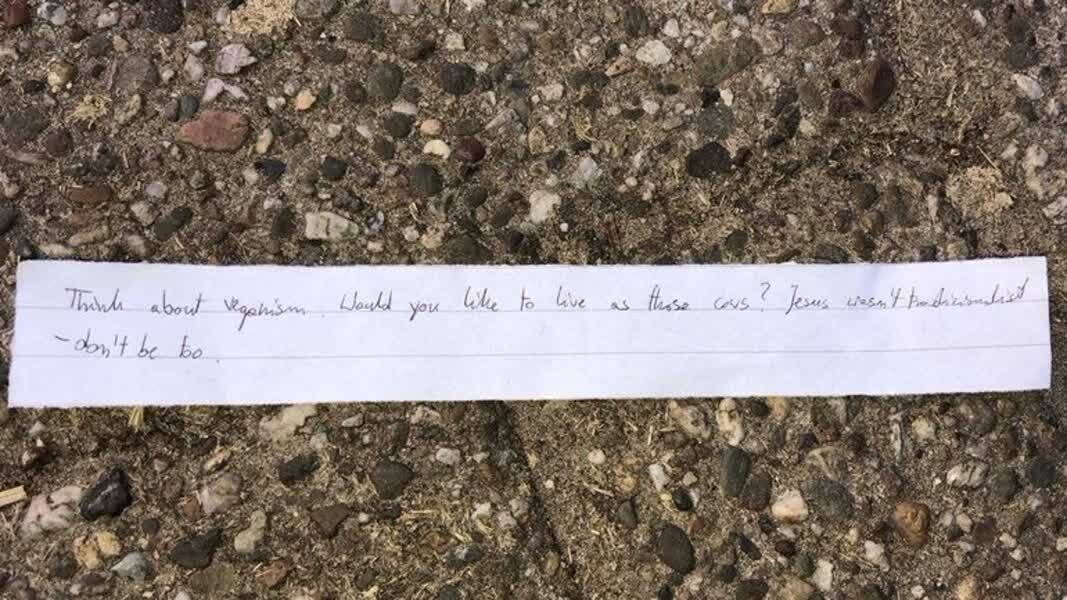 Think about veganism. Would you like to live as those cows? Jesus wasn't tradicionalist
-don't be too.